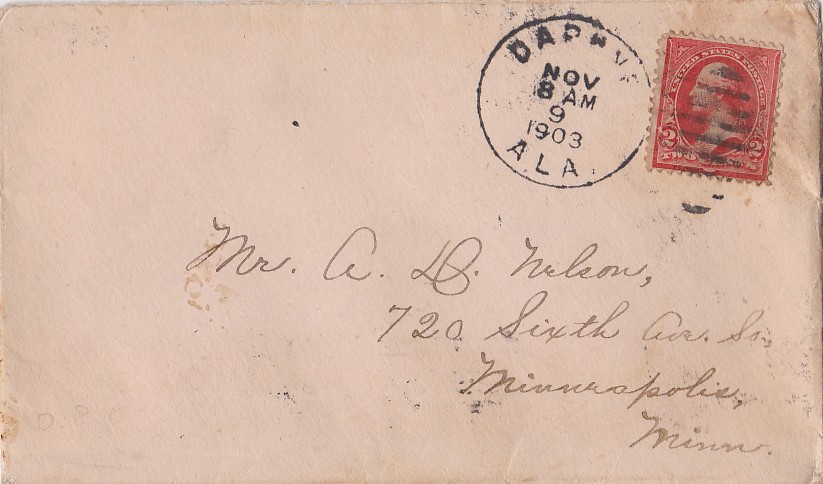 DAPHNE
NOV
8 AM
9
1903
ALA.
UNITED STATES POSTAGE
2 2
Mr. A. D. Nelson,
720 Sixth Ave. So.,
Minneapolis,
Minn.